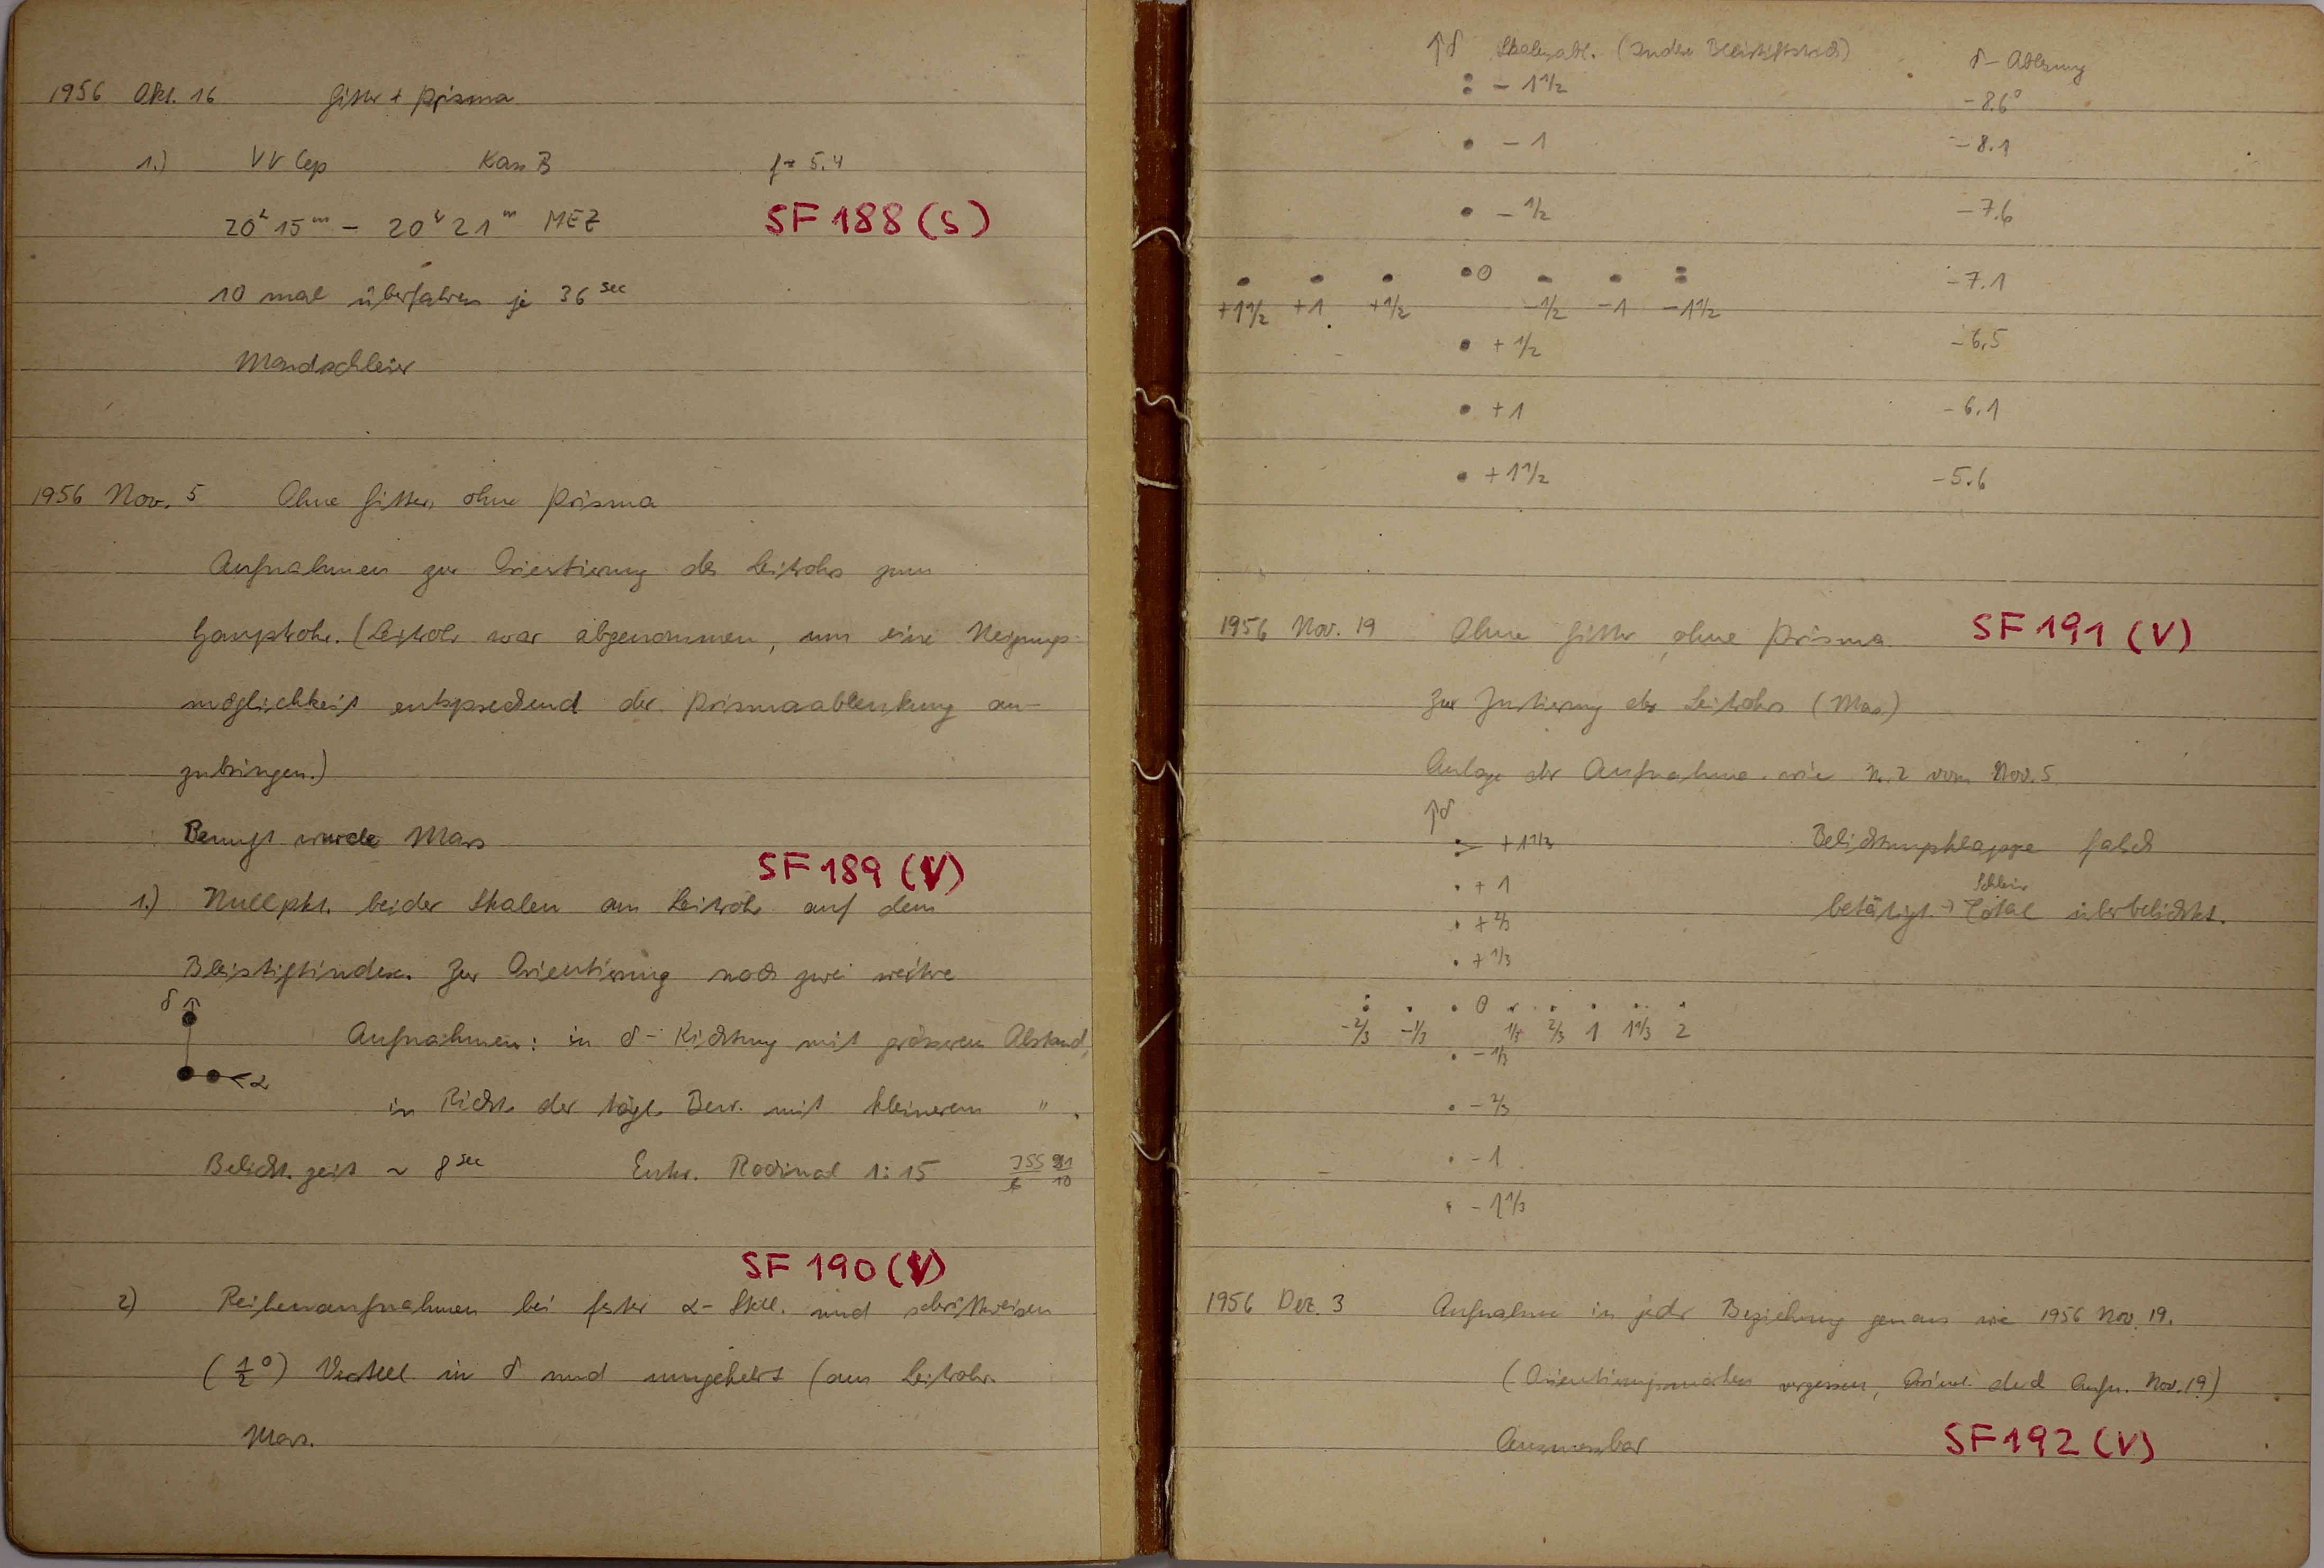 1956 Okt. 16 Gitter + Prisma
1.) VV Cep Kass B f = 5.4
20h 15m - 20h 21m MEZ SF 188 (S)
10 mal überfahren je 36 sec
Mondschleier
1956 Nov. 5 Ohne Gitter, ohne Prisma
Aufnahmen zur Orientierung des Leitrohrs zum
Hauptrohr. (Leitrohr war abgenommen, um eine Neigungs-
möglichkeit entsprechend der Prismaablenkung an-
zubringen.)
Benutzt wurde Mars
SF 189 (V)
1.) Nullpkt. beider Skalen am Leitrohr auf dem
Bleistiftindex. Zur Orientierung noch zwei weitere
δ ↑
Aufnahmen: in δ-Richtung mit grösserem Abstand,
α
in Richt. der tägl. Bew. mit kleinerem " .
Belicht.zeit ~ 8 sec Entw. Rodinal 1:15
SF 190 (V)
2) Reihenaufnahmen bei fester α-Stell. und schrittweisen
(1/2°) Verstell. in δ und umgekehrt (am Leitrohr.
Mars.
↑δ Skalenabl. (Index Bleistiftstrich) δ-Ablesung
: - 1 1/2 -8.6°
• - 1 -8.1
• - 1/2 -7.6
• • • • 0 • • : -7.1
+1 1/2 +1 +1/2 -1/2 -1 -1 1/2
• + 1/2 -6.5
• + 1 -6.1
• + 1 1/2 -5.6
1956 Nov. 19 Ohne Gitter, ohne Prisma. SF 191 (V)
Zur Justierung des Leitrohrs (Mars)
Anlage der Aufnahme wie N. 2 vom Nov. 5
↑δ
+ 1 1/3 Belichtungsklappe falsch
• + 1 Schleier
betätigt → Total überbelichtet.
• + 2/3
• + 1/3
: • • 0 • • • •• •
-2/3 -1/3 1/3 2/3 1 1 1/3 2
• - 1/3
• - 2/3
• - 1
• - 1 1/3
1956 Dez. 3 Aufnahme in jeder Beziehung genau wie 1956 Nov. 19.
(Orientierungsmarken vergessen, Orient. durch Aufn. Nov. 19)
Ausmessbar SF 192 (V)